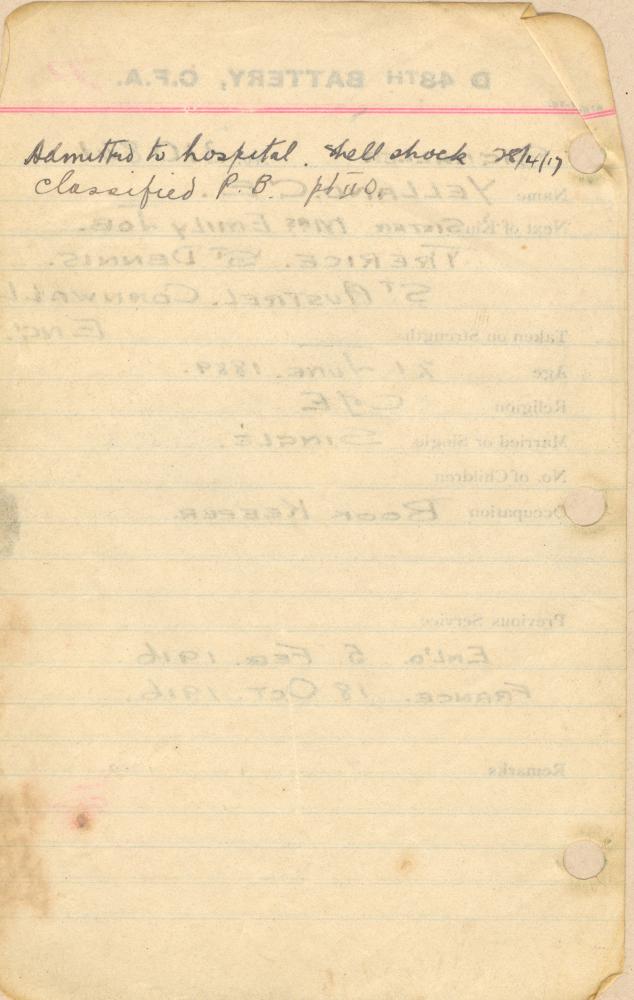 Admitted to hospital. Shell shock 28/4/17
Classified P. B. pt II O.
D 48TH BATTERY, C.F.A.
Name YELLAND, C.
Next of Kin Sister Mrs Emily Job.
TRERICE. ST DENNIS.
ST AUSTREL. CORNWALL
ENG.
Taken on Strength
Age 21 JUNE. 1889.
Religion C of E
Married or Single SINGLE.
No. of Children
Occupation BOOK KEEPER.
Previous Service
ENL'D. 5 FEB. 1916.
FRANCE. 18 OCT. 1916.
Remarks